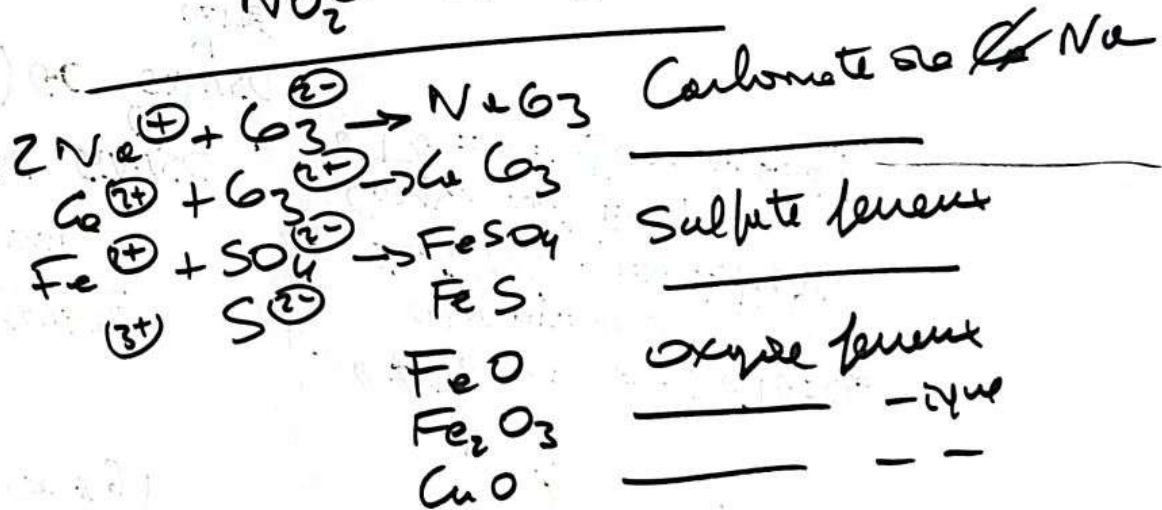 NO2
2 Na + + CO3 2- → NaCO3 Carbonate de Na
Ca 2+ + CO3 2- → Ca CO3
Fe 2+ + SO4 2- → FeSO4 Sulfate ferreux
3+ S 2- FeS
FeO oxyde ferreux
Fe2O3 -ique
CuO